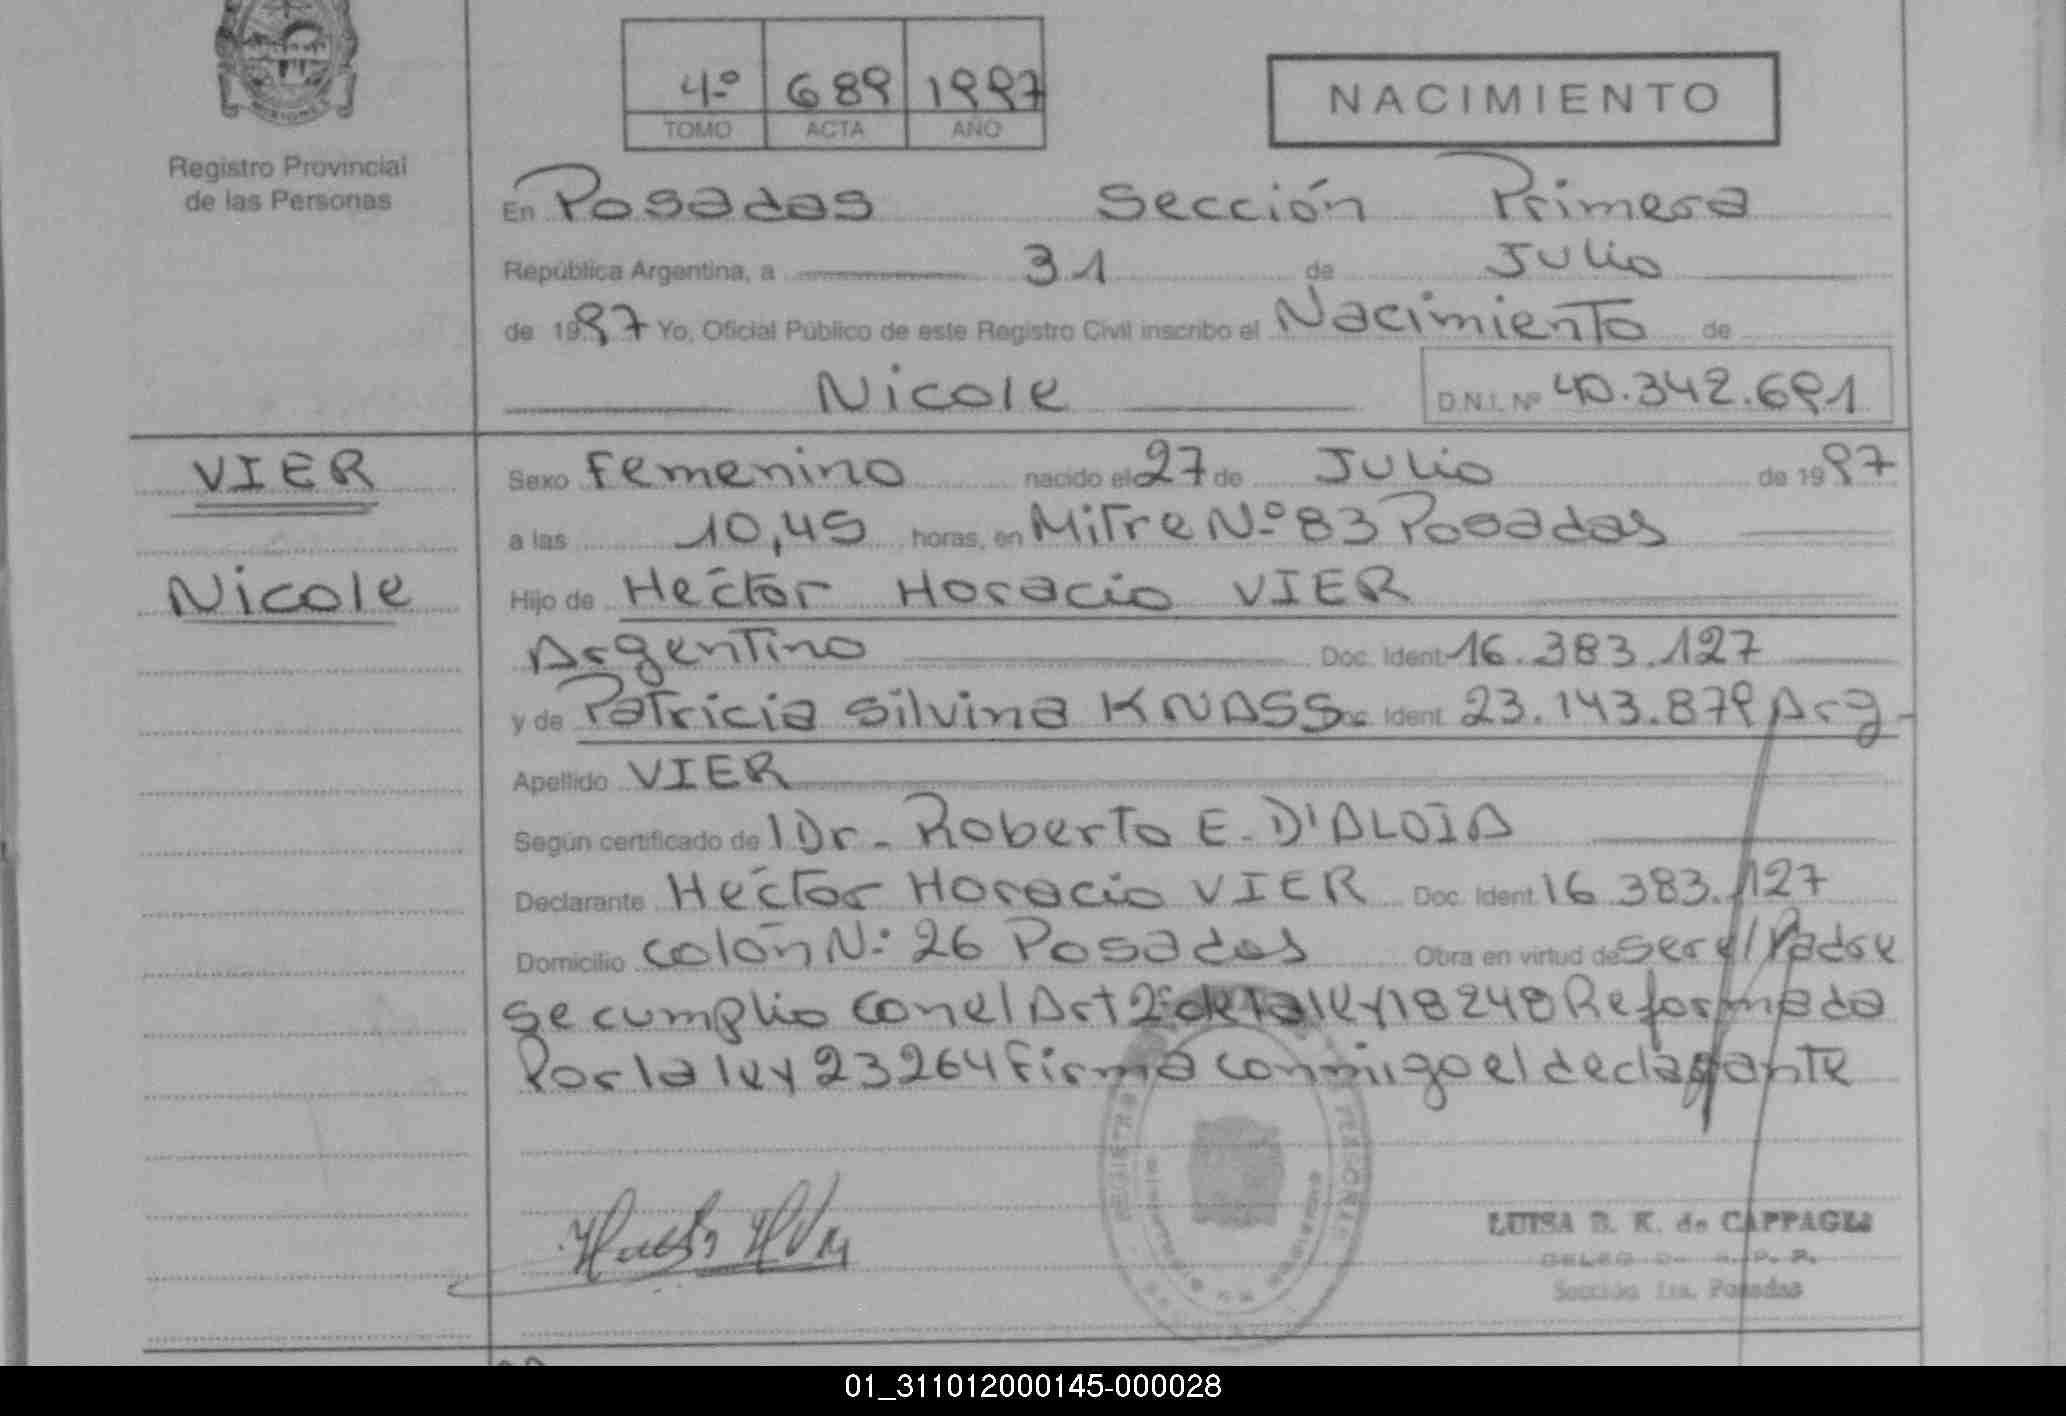 4º 689 1997
TOMO ACTA AÑO
NACIMIENTO
Registro Provincial
de las Personas
En Posadas Sección Primera
República Argentina, a 31 de Julio
de 1997 Yo, Oficial Público de este Registro Civil inscribo el Nacimiento de
Nicole D.N.I. Nº 40.342.691
VIER
Nicole
Sexo Femenino nacido el 27 de Julio de 1997
a las 10,45 horas, en Mitre Nº 83 Posadas
Hijo de Héctor Horacio VIER
Argentino Doc. Ident 16.383.127
y de Patricia Silvina KNASS Doc. Ident 23.143.879 Arg-
Apellido VIER
Según certificado de l Dr. Roberto E. D'ALOIA
Declarante Héctor Horacio VIER Doc. Ident. 16.383.127
Domicilio Colón Nº 26 Posadas Obra en virtud de ser el Padre
se cumplio con el Art 2º de la ley 18248 Reformada
Por la ley 23264 Firma conmigo el declarante
LUISA B. K. de CAPPAGLI
Sección 1ra. Posadas
01_311012000145-000028